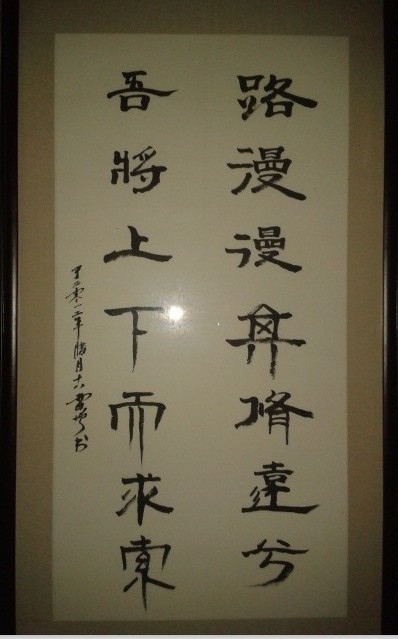 路漫漫其脩遠兮
吾將上下而求索
于二零一二年腊月十六雷书